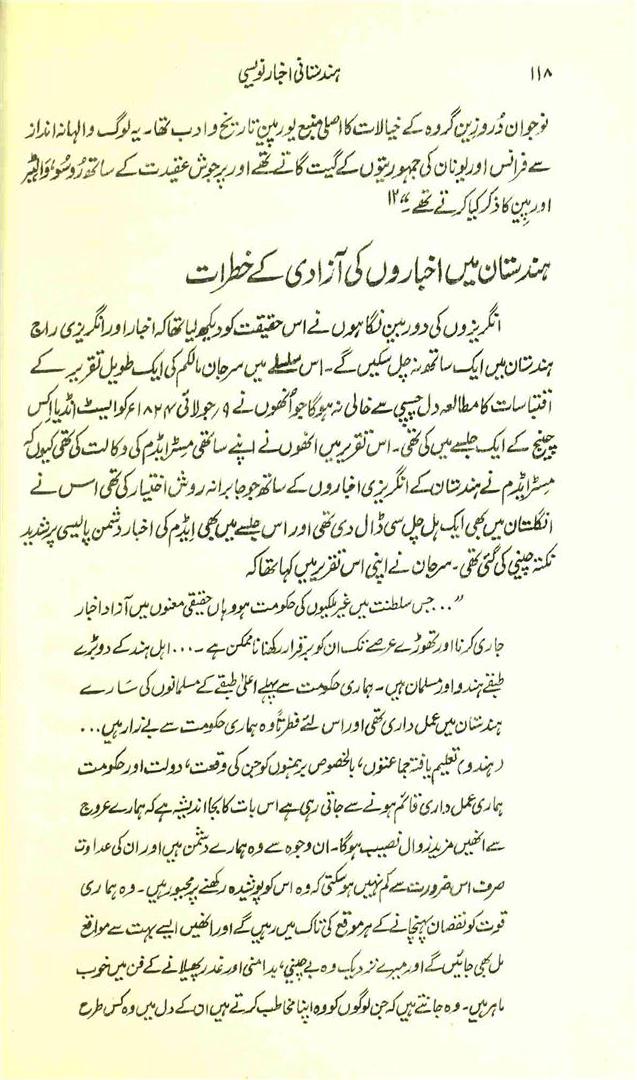 ۱۱۸ ہندستانی اخبار نویسی
نوجوان ڈروزین گروہ کے خیالات کا اصلی منبع یورپین تاریخ و ادب تھا۔ یہ لوگ والہانہ انداز
سے فرانس اور یونان کی جمہوریتوں کے گیت گاتے تھے اور پرجوش عقیدت کے ساتھ روسو، والٹیر
اور پین کا ذکر کیا کرتے تھے۔
ہندستان میں اخباروں کی آزادی کے خطرات
انگریزوں کی دوربین نگاہوں نے اس حقیقت کو دیکھ لیا تھا کہ اخبار اور انگریزی راج
ہندستان میں ایک ساتھ نہ چل سکیں گے۔ اس سلسلے میں سر جان مالکم کی ایک طویل تقریر کے
اقتباسات کا مطالعہ دل چسپی سے خالی نہ ہوگا جو اُنھوں نے ۹؍ جولائی ۱۸۲۴ء کو ایسٹ انڈیا اِکس
چینج کے ایک جلسے میں کی تھی۔ اس تقریر میں انھوں نے اپنے ساتھی مسٹر ایڈم کی وکالت کی تھی کیوں کہ
مسٹر ایڈم نے ہندستان کے انگریزی اخباروں کے ساتھ جو جابرانہ روش اختیار کی تھی اس نے
انگلستان میں بھی ایک ہل چل سی ڈال دی تھی اور اس جلسے میں بھی ایڈم کی اخبار دشمن پالیسی پر شدید
نکتہ چینی کی گئی تھی۔ سر جان نے اپنی اس تقریر میں کہا تھا کہ
”... جس سلطنت میں غیر ملکیوں کی حکومت ہو وہاں حقیقی معنوں میں آزاد اخبار
جاری کرنا اور تھوڑے عرصے تک ان کو برقرار رکھنا ناممکن ہے۔ ... اہل ہند کے دو بڑے
طبقے ہندو اور مسلمان ہیں۔ ہماری حکومت سے پہلے اعلیٰ طبقے کے مسلمانوں کی سارے
ہندستان میں عمل داری تھی اور اس لئے فطرتاً وہ ہماری حکومت سے بے زار ہیں ...
(ہندو) تعلیم یافتہ جماعتوں، بالخصوص برہمنوں کو جن کی وقعت، دولت اور حکومت
ہماری عمل داری قائم ہونے سے جاتی رہی ہے اس بات کا بجا اندیشہ ہے کہ ہمارے عروج
سے انھیں مزید زوال نصیب ہوگا۔ ان وجوہ سے وہ ہمارے دشمن ہیں اور ان کی عداوت
صرف اس ضرورت سے کم نہیں ہوسکتی کہ وہ اس کو پوشیدہ رکھنے پر مجبور ہیں۔ وہ ہماری
قوت کو نقصان پہنچانے کے ہر موقع کی تاک میں رہیں گے اور انھیں ایسے بہت سے مواقع
مل بھی جائیں گے اور میرے نزدیک وہ بے چینی، بدامنی اور غدر پھیلانے کے فن میں خوب
ماہر ہیں۔ وہ جانتے ہیں کہ جن لوگوں کو وہ اپنا مخاطب کرتے ہیں ان کے دل میں وہ کس طرح